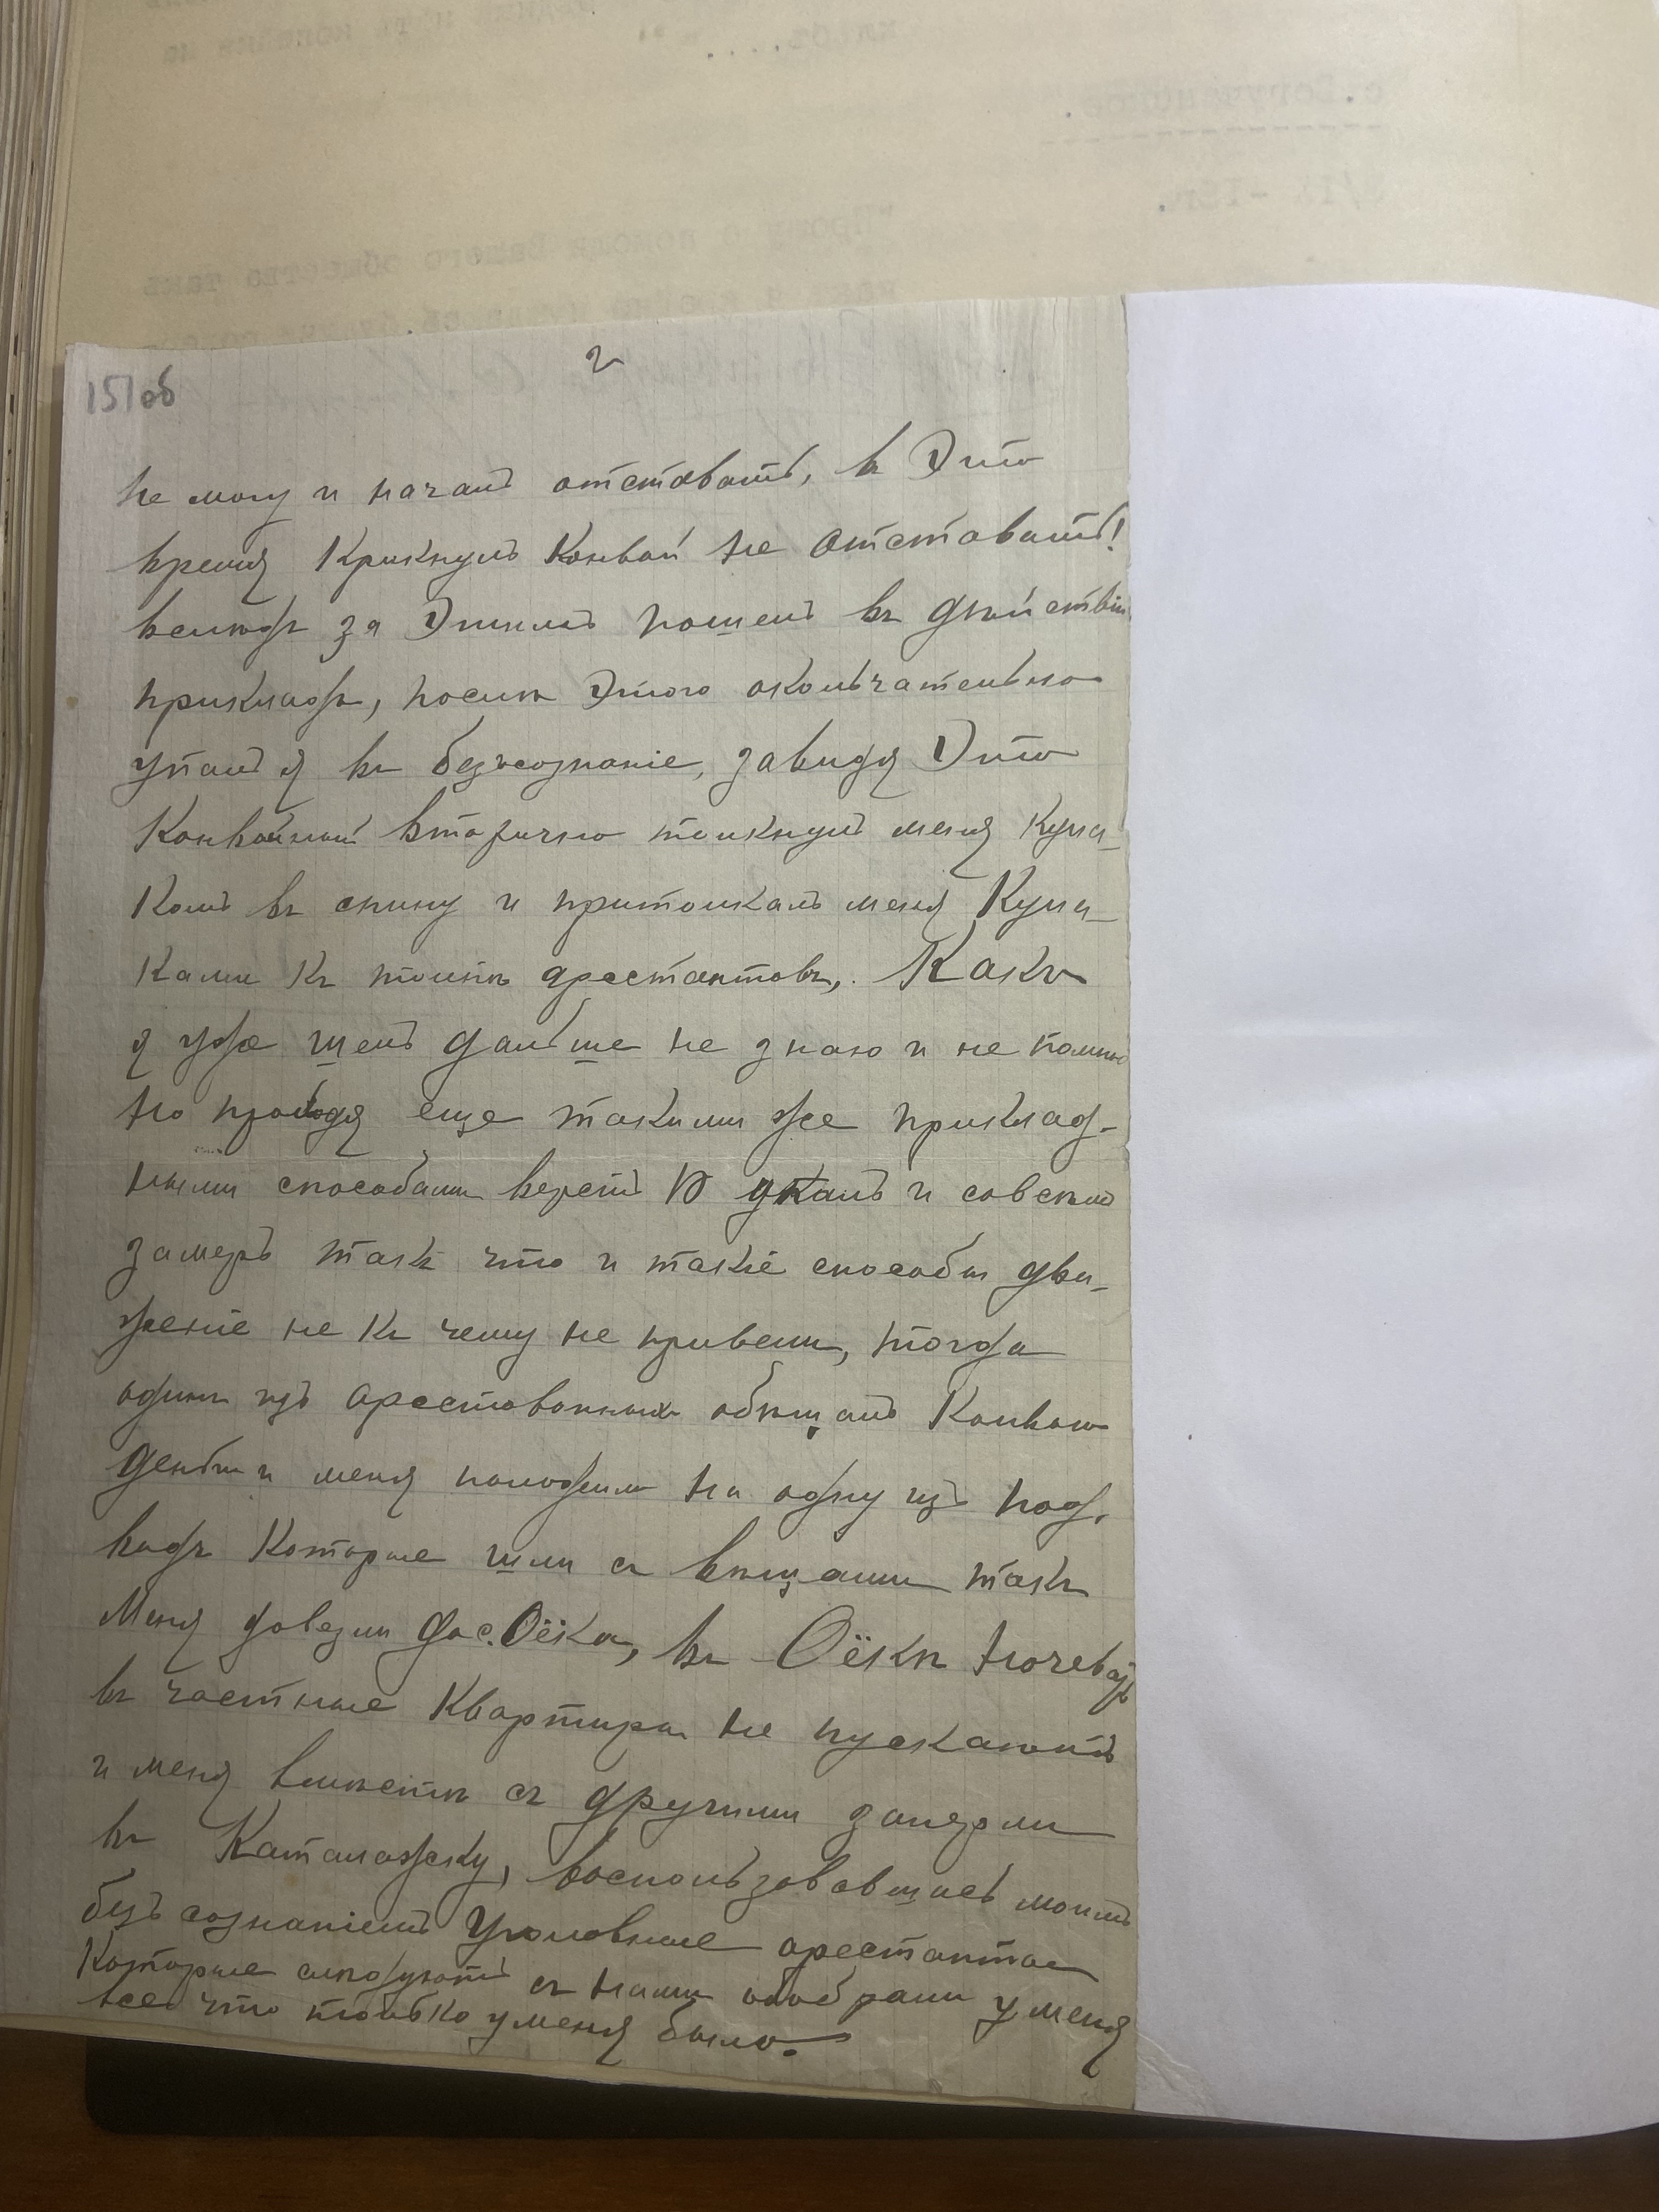 2
151об
не могу и началъ отставать, в Это
время Крикнулъ Конвой не Отставать!
вслѣдъ за Этимъ пошелъ въ дѣйствіи
прикладъ, послѣ Этого окольчательно
упалъ я въ безъсознаніе, завидя Это
Конвойный вторично толкнулъ меня Кула-
Комъ въ спину и притолкалъ меня Кула-
Ками Къ толпѣ арестантовъ, Какъ
я уже шелъ дальше не знаю и не помню
но пройдя еще такими же приклад-
ными способами верстъ 10 упалъ и совсѣмъ
замеръ такъ что и такіе способы дви-
женіе не Къ чему не привели, тогда
одинъ изъ арестованныхъ обѣщалъ Конвою
деньги и меня положили на одну изъ под-
водъ Которые шли съ вѣщами такъ
Меня довезли до с. Оёка, въ Оёкѣ ночевать
въ частные Квартиры не пускаютъ
и меня вмѣсти съ другими заперли
въ Каталажку, воспользовавшись моимъ
безъ сознаніемъ Уголовные арестанты
Которые слѣдуютъ съ нами обобрали у меня
все что только у меня было.